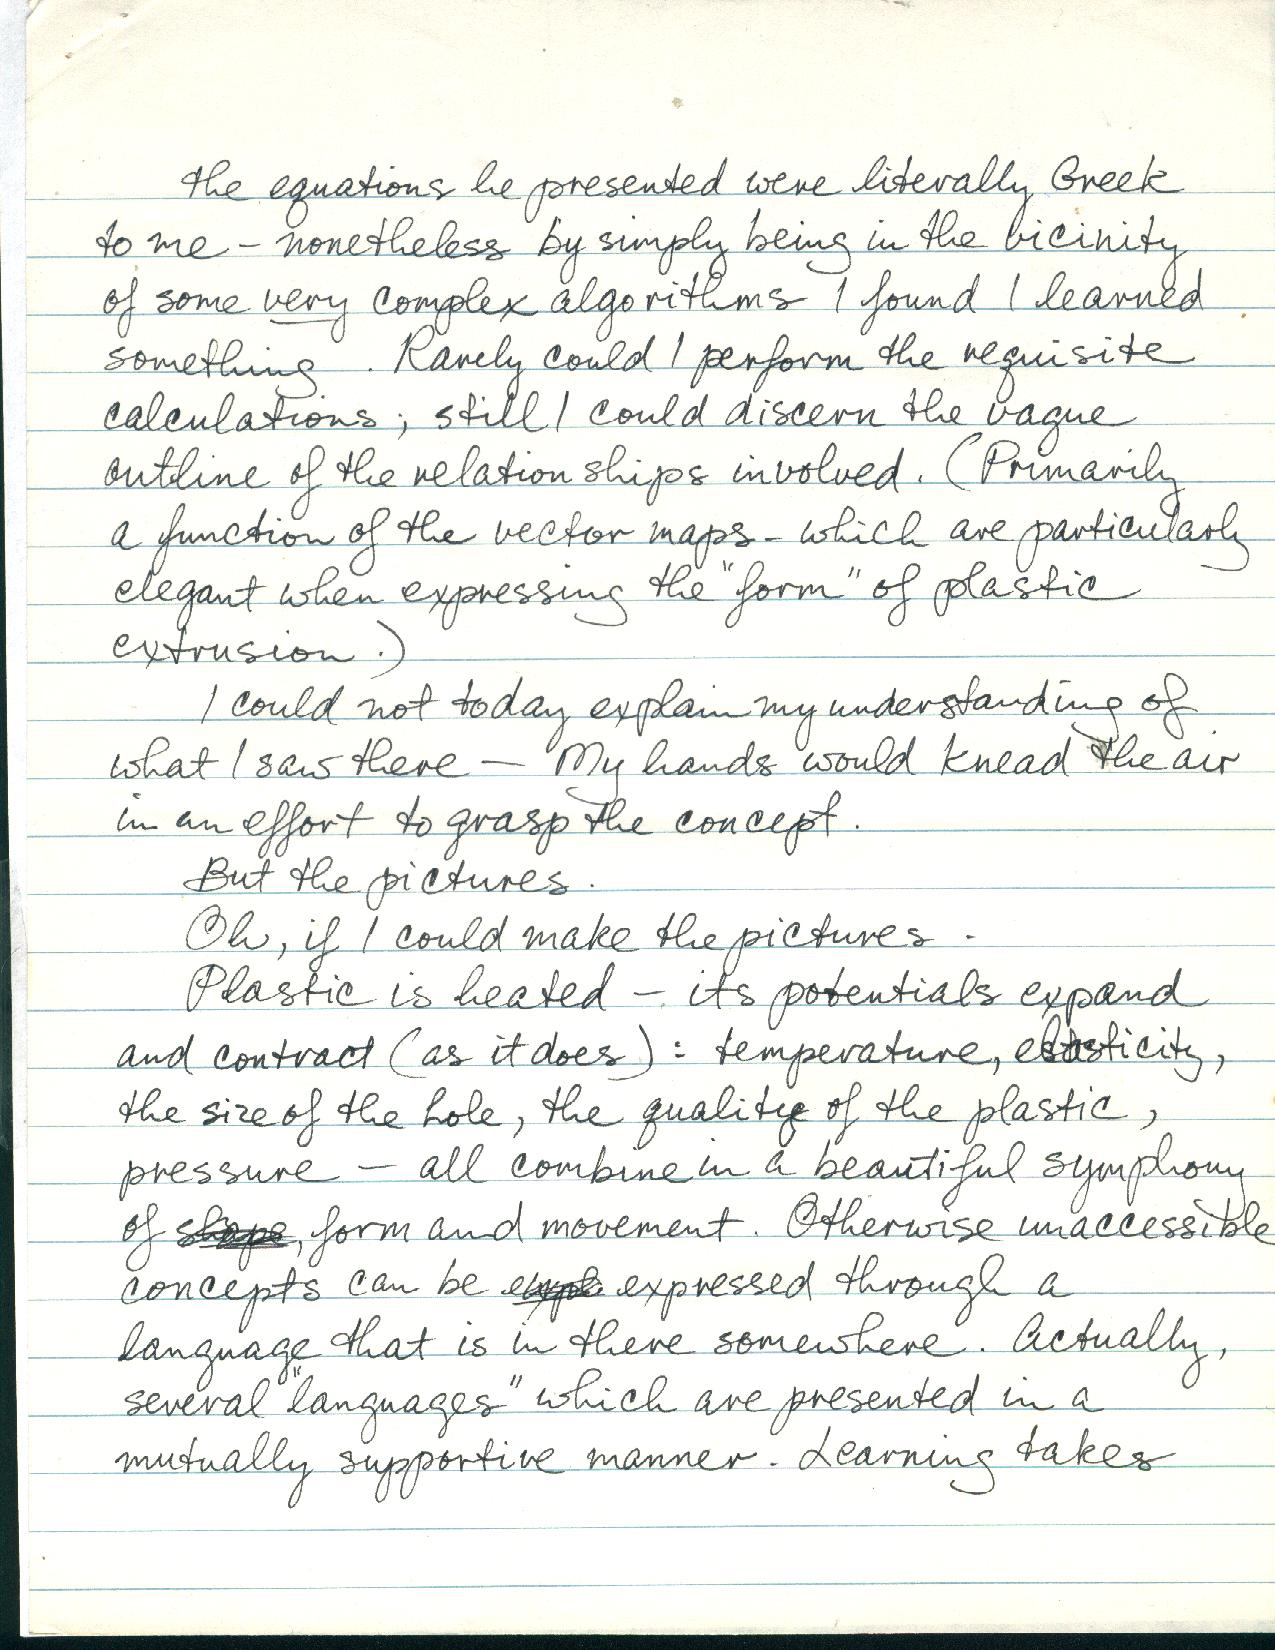 The equations he presented were literally Greek
to me – nonetheless by simply being in the vicinity
of some very complex algorithms I found I learned
something. Rarely could I perform the requisite
calculations; still I could discern the vague
outline of the relationships involved. (Primarily
a function of the vector maps – which are particularly
elegant when expressing the "form" of plastic
extrusion.)
I could not today explain my understanding of
what I saw there — My hands would knead the air
in an effort to grasp the concept.
But the pictures.
Oh, if I could make the pictures.
Plastic is heated – its potentials expand
and contract (as it does): temperature, elasticity,
the size of the hole, the quality of the plastic,
pressure – all combine in a beautiful symphony
of shape, form and movement. Otherwise unaccessible
concepts can be expressed through a
language that is in there somewhere. Actually,
several "languages" which are presented in a
mutually supportive manner. Learning takes